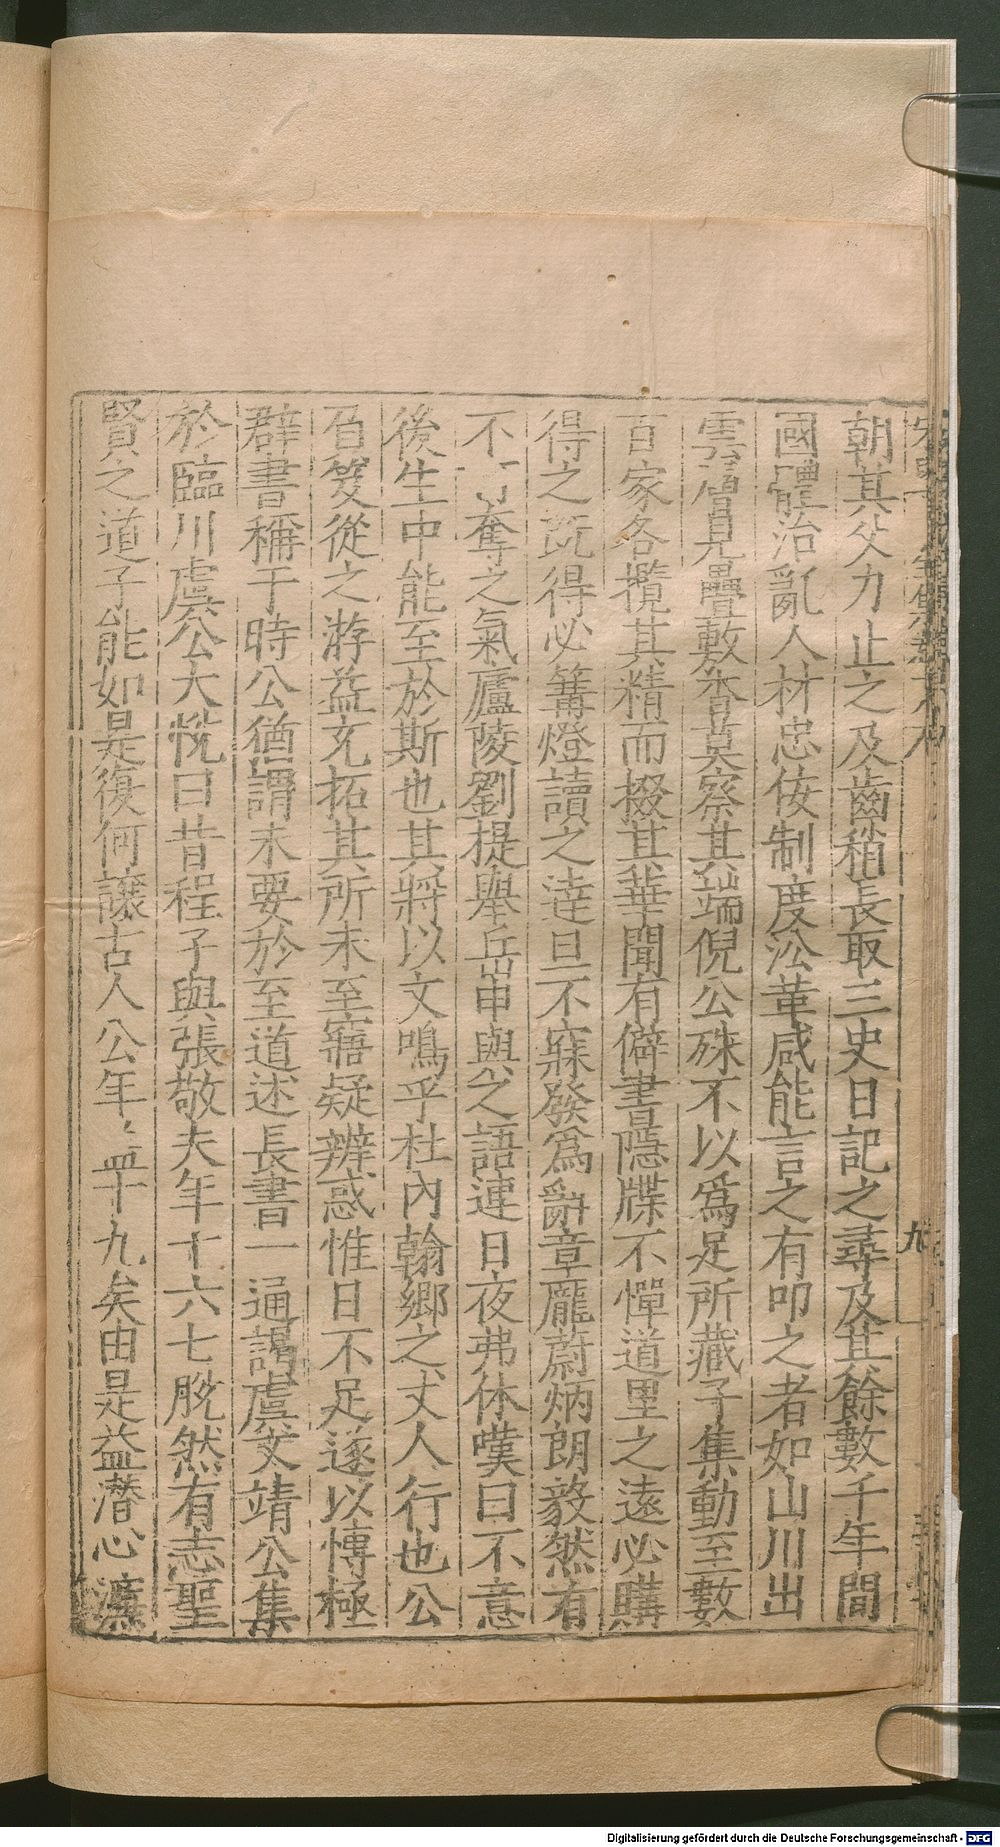 朝其父力止之及齒稍長取三史日記之尋及其餘數千年間
國體治亂人材忠佞制度㳂革咸能言之有叩之者如山川出
雲層見疊敷杳莫察其端倪公殊不以爲足所藏子集動至數
百家各攬其精而掇其華聞有僻書隱牒不憚道里之遠必購
得之既得必篝燈讀之達旦不寐發爲辭章龐蔚炳朗毅然有
不 奪之氣廬陵劉提舉岳申與之語連日夜弗休嘆曰不意
後生中能至於斯也其將以文鳴乎杜內翰鄉之丈人行也公
負笈從之游益充拓其所未至寤疑辨惑惟日不足遂以慱極
群書稱于時公猶謂未要於至道述長書一通謁虞文靖公集
於臨川虞公大恱曰昔程子與張敬夫年十六七脱然有志聖
賢之道子能如是復何讓古人公年 四十九矣由是益潛心濂
九
Digitalisierung gefördert durch die Deutsche Forschungsgemeinschaft - DFG